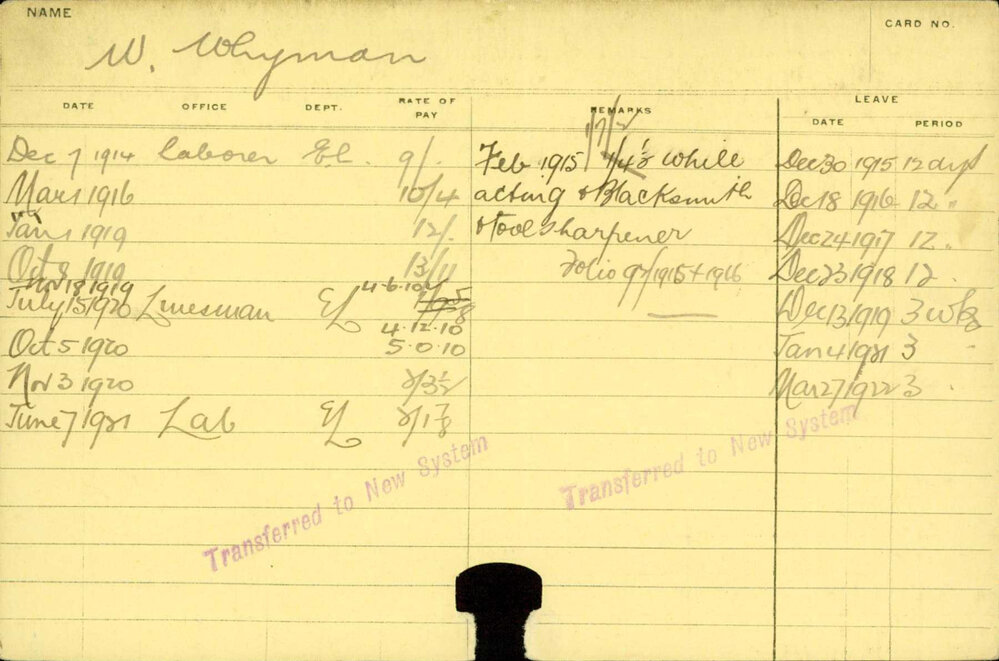 NAME
CARD NO.
W. Whyman
DATE OFFICE DEPT. RATE OF PAY REMARKS LEAVE
DATE PERIOD
Dec 7 1914 Laborer El. 9/. Feb 1915 while Dec 30 1915 12 dys
Mar 1 1916 10/4 acting Blacksmith Dec 18 1916 12 "
Jan 1 1919 12/. & Tool sharpener Dec 24 1917 12 "
Oct 8 1919 13/11 Folio 97/1915 + 1916 Dec 23 1918 12 "
Nov 18 1919 4-6-10
July 15 1920 Linesman El Dec 13 1919 3 wks
4.12.10
Oct 5 1920 5.0.10 Jan 4 1921 3 "
Nov 3 1920 2/3½ Mar 27 1922 3 "
June 7 1921 Lab El 2/1⅞
Transferred to New System
Transferred to New System